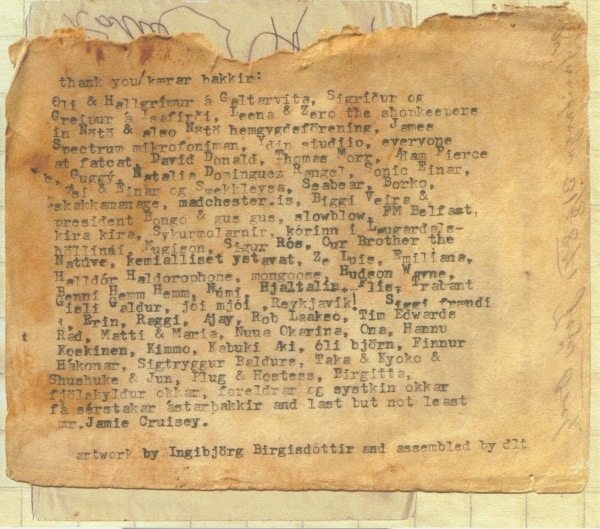 thank you/kærar þakkir:
Óli & Hallgrímur á Galtarvita, Sigríður og
Greipur á Ísafirði, Leena & Zero the shopkeepers
in Nötö & also Nötö hemgygdsförening, James
Spectrum mikrofoniman, Ydin studiio, everyone
at fatcat, David Donald, Thomas Morr, Adam Pierce
Guggý, Natalia Dominguez Rangel, Sonic Einar,
& Einar og Smekkleysa, Seabear, Borko,
skakkamanage, madchester.is, Biggi Veira &
president Bongo & gus gus, slowblow, FM Belfast,
kira kira, Sykurmolarnir, kórinn í Laugardals-
höllinni, Mugison, Sigur Rós, Our Brother the
Native, kemialliset ystavat, Ze Luis, Emiliana,
Halldór Haldorophone, mongoose, Hudson Wayne,
Benni Hemm Hemm, Númi, Hjaltalin, Flís, Trabant
Gísli Galdur, jói mjói ,Reykjavik! Siggi frændi
, Erin, Raggi, Ajay, Rob Laakso, Tim Edwards
Rad, Matti & Maria, Nuna Okarina, Ona, Hannu
Koskinen, Kimmo, Kabuki Aki, óli björn, Finnur
Hákonar, Sigtryggur Baldurs, Taka & Kyoko &
Shushuke & Jun, Plug & Hostess, Birgitta,
fjölskyldur okkar, foreldrar og systkin okkar
fá sérstakar ástarþakkir and last but not least
mr. Jamie Cruisey.
artwork by Ingibjörg Birgisdóttir and assembled by dlt